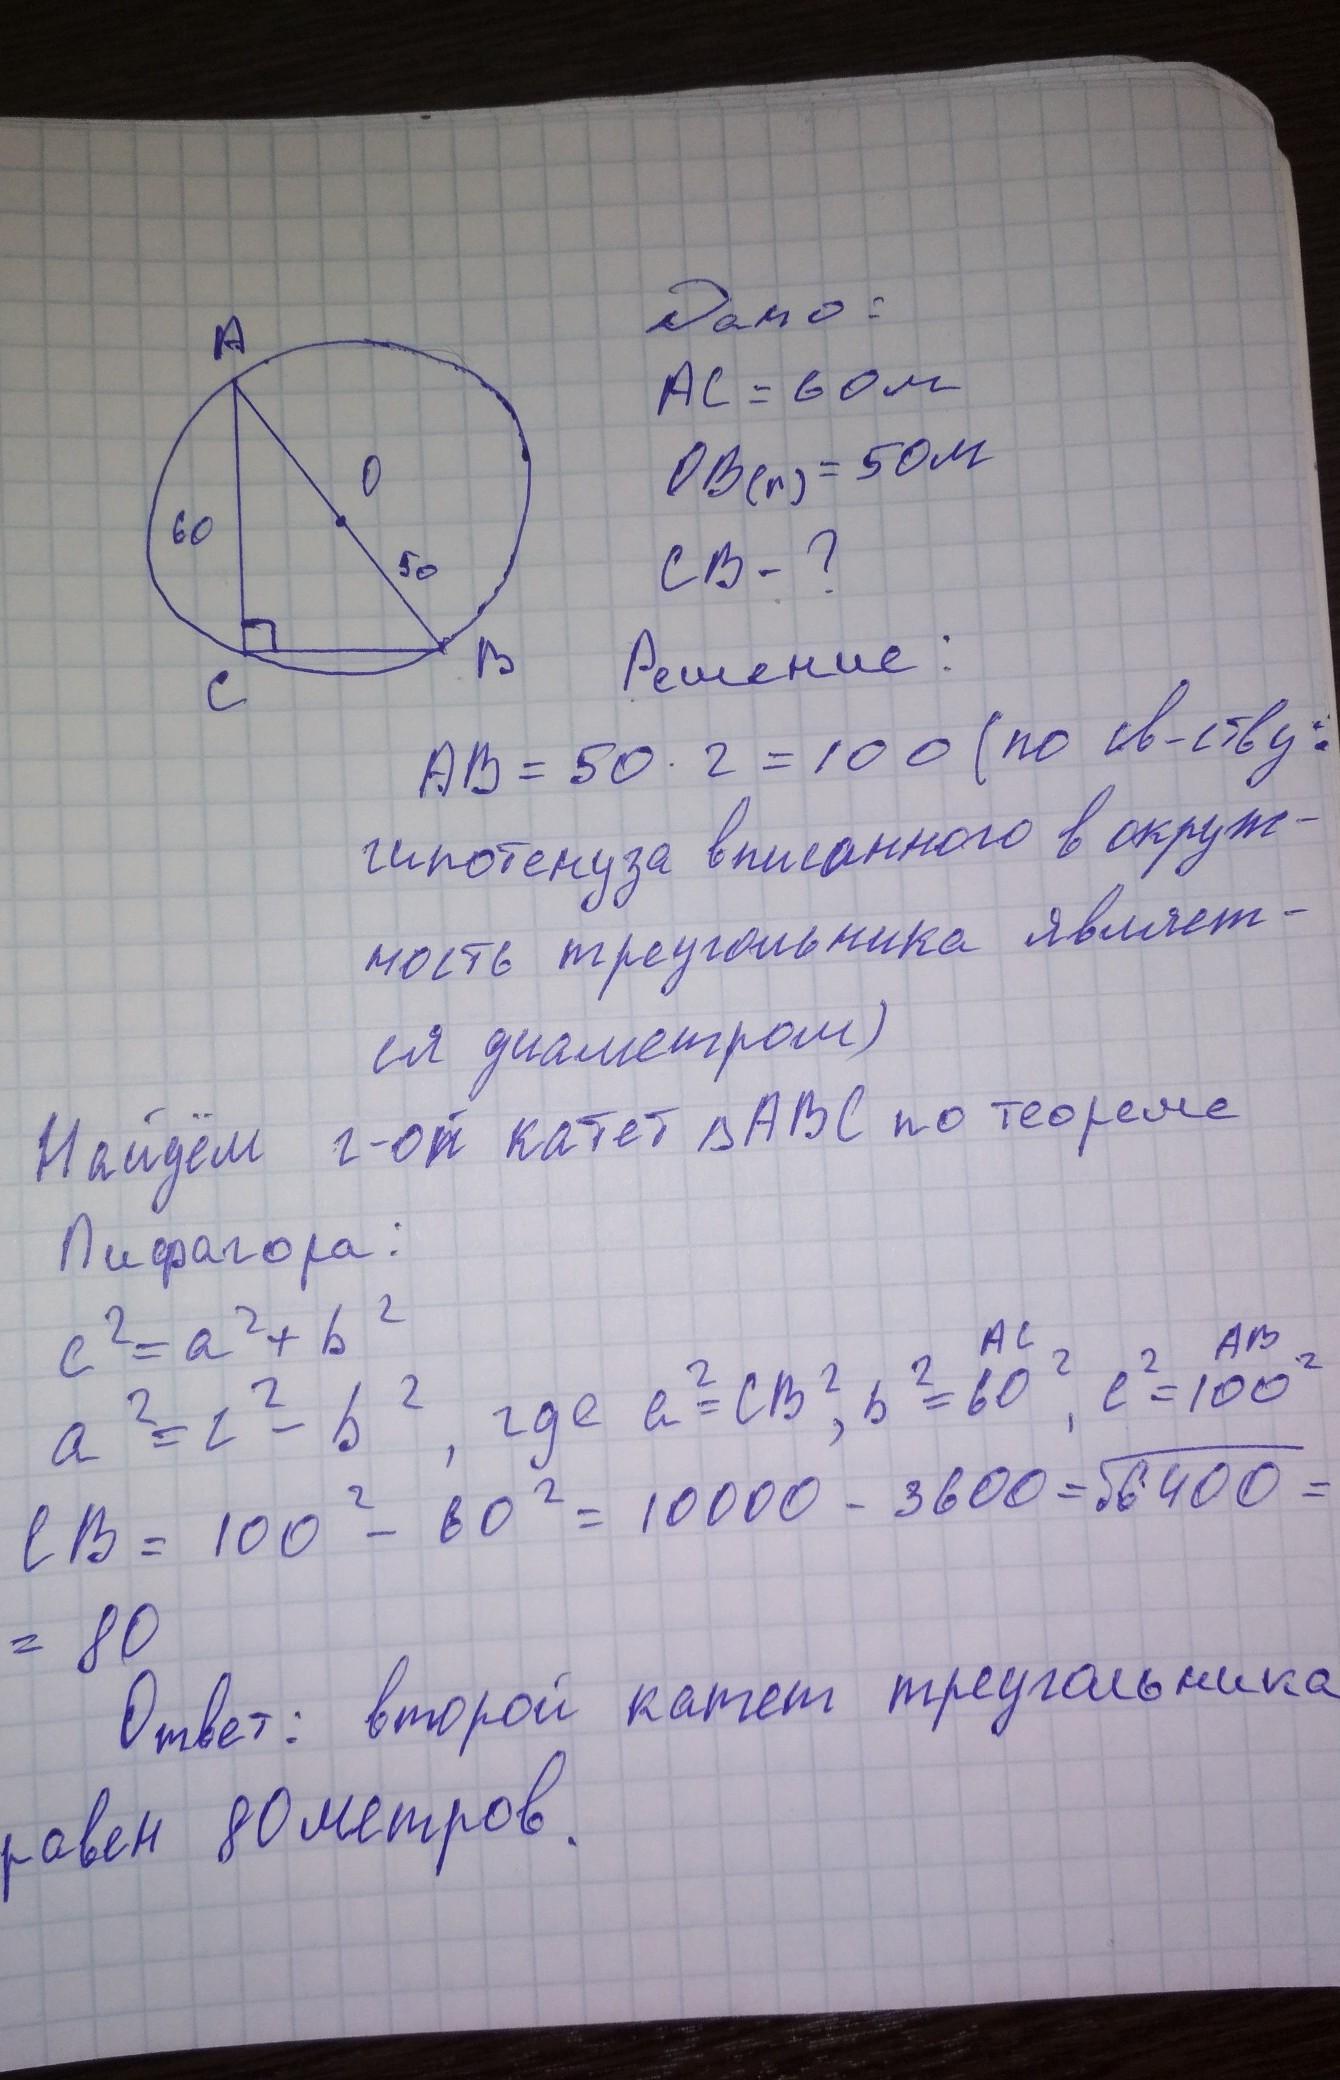 A
O
60
50
C
B
Дано:
AC = 60м
OB(r) = 50м
CB - ?
Решение:
AB = 50 · 2 = 100 (по св-ству:
гипотенуза вписанного в окруж-
ность треугольника являет-
ся диаметром)
Найдём 2-ой катет △ABC по теореме
Пифагора:
c² = a² + b²
AC AB
a² = c² - b², где a² = CB², b² = 60², c² = 100²
CB = 100² - 60² = 10000 - 3600 = √6400 =
= 80
Ответ: второй катет треугольника
равен 80 метров.